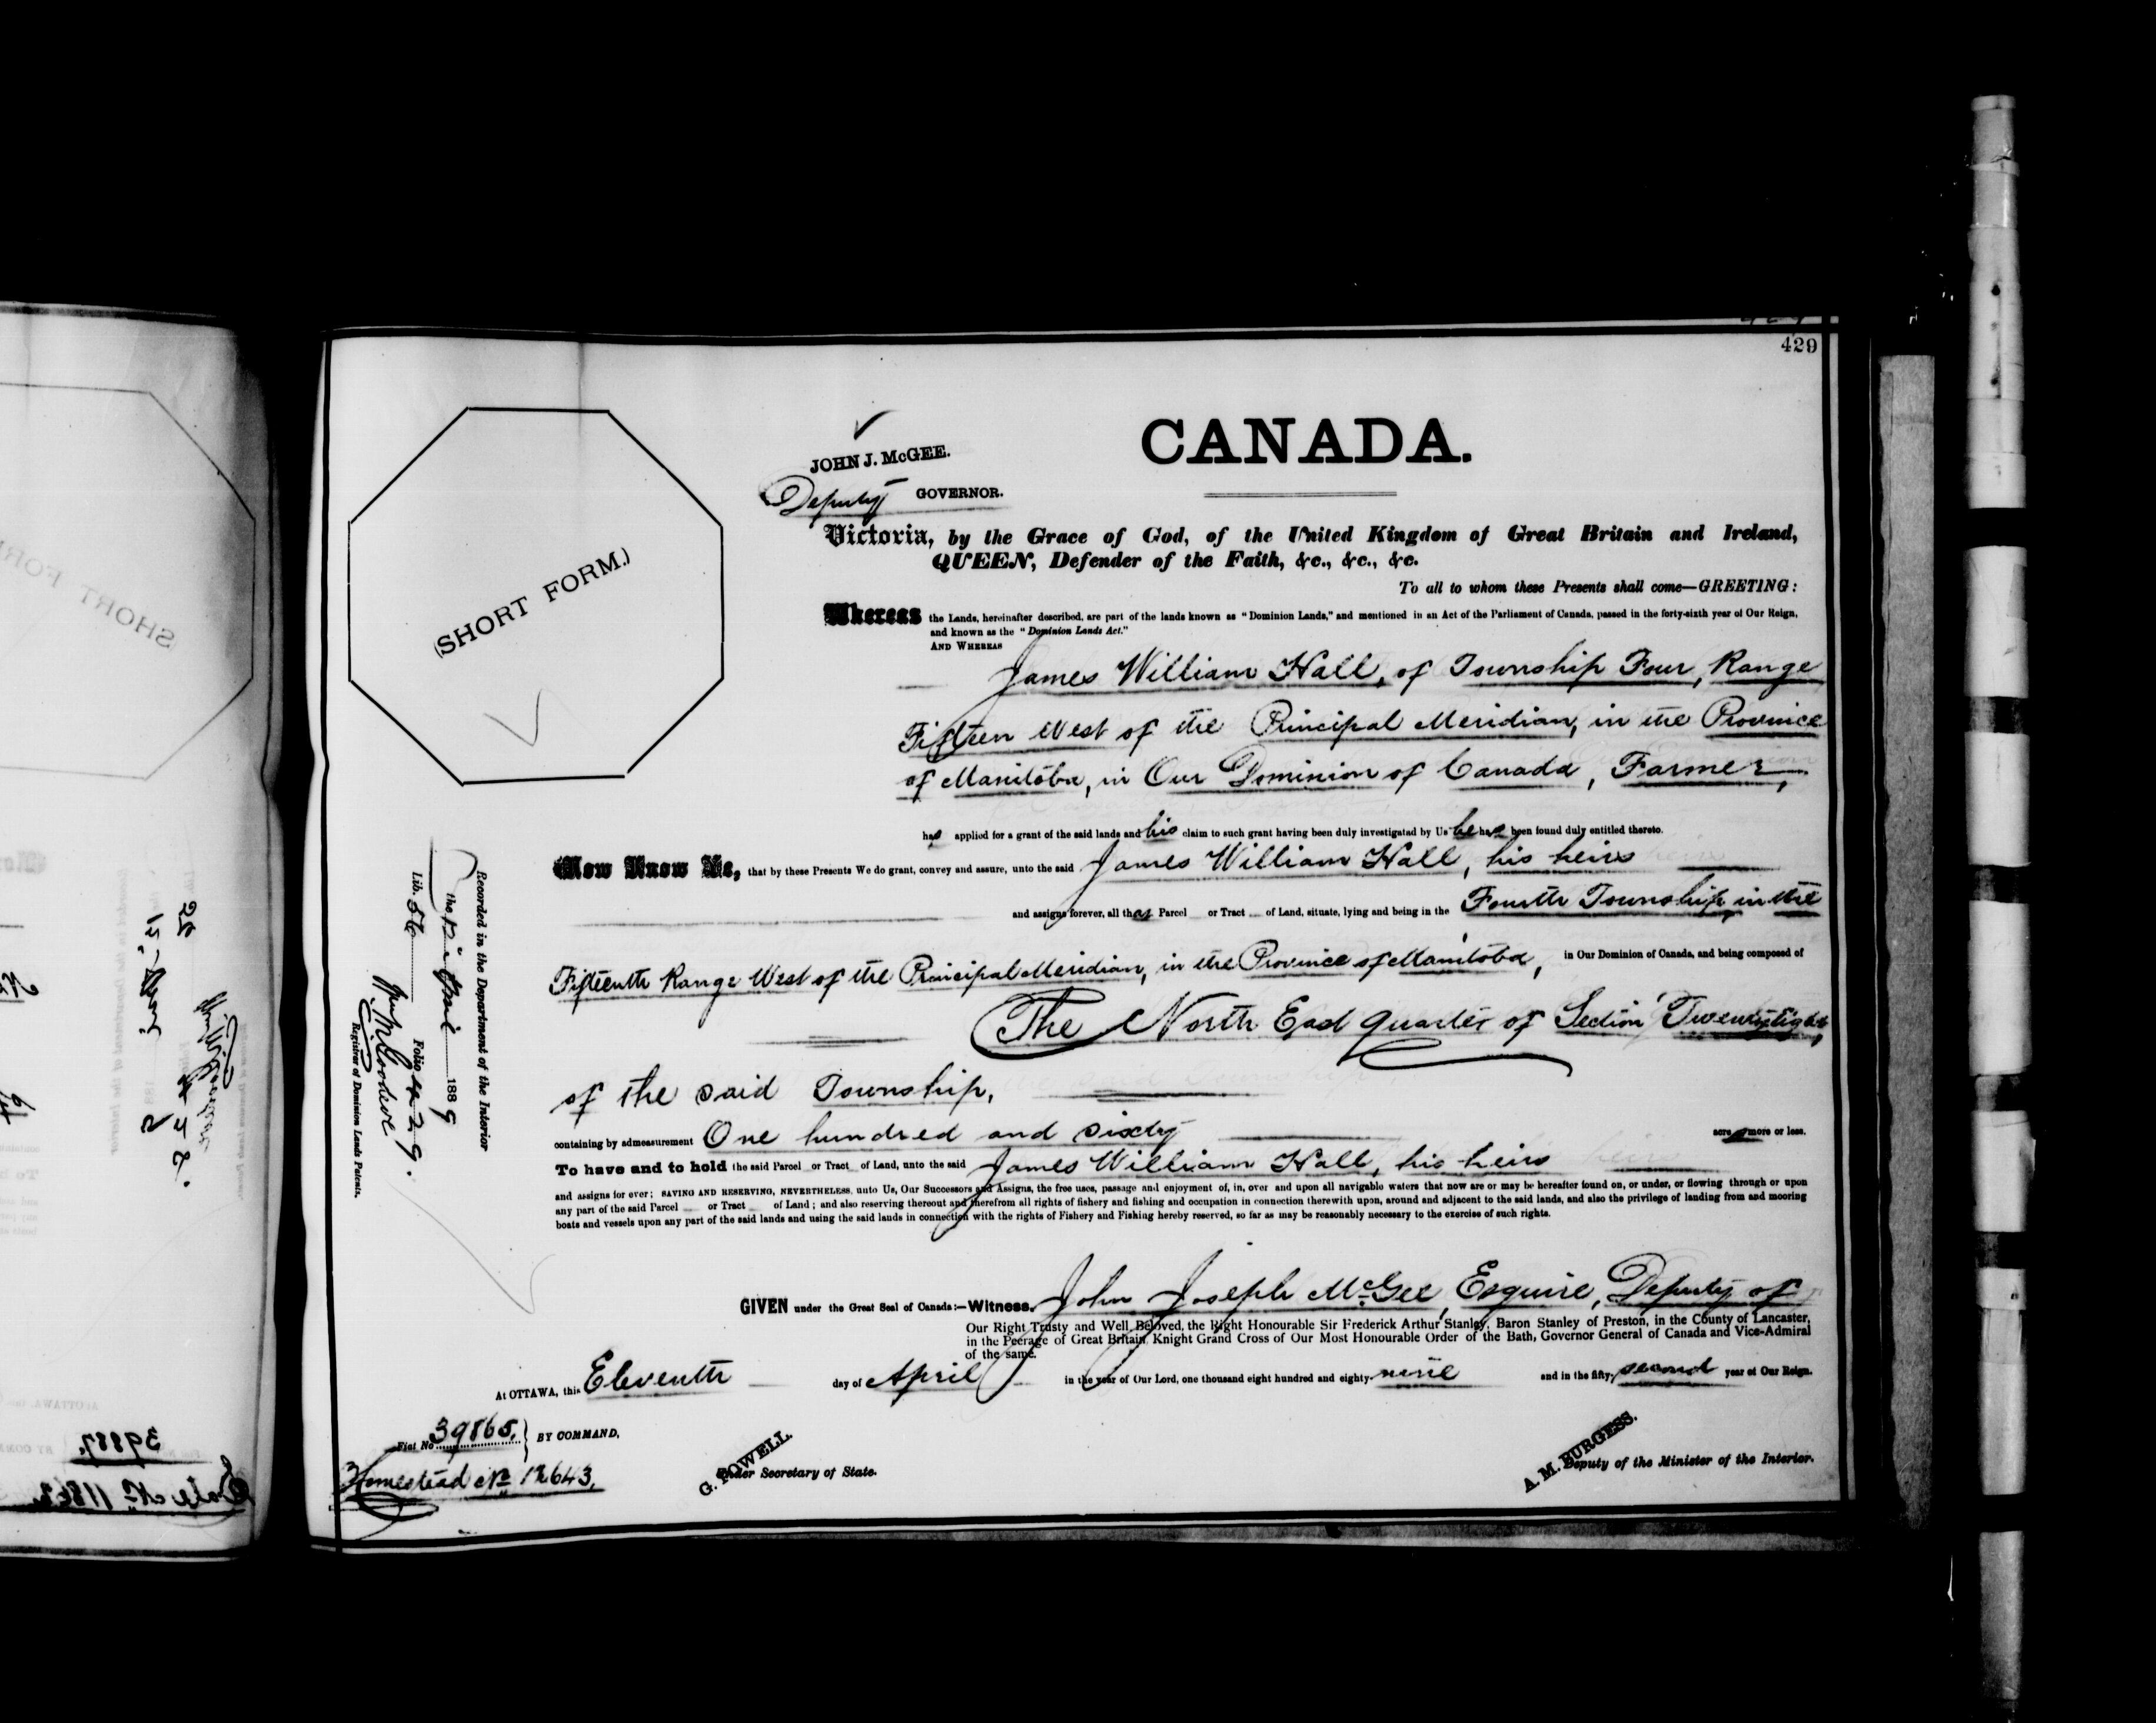 429
CANADA.
JOHN J. McGEE.
Deputy GOVERNOR.
(SHORT FORM.)
Victoria, by the Grace of God, of the United Kingdom of Great Britain and Ireland,
QUEEN, Defender of the Faith, &c., &c., &c.
To all to whom these Presents shall come—GREETING:
Whereas the Lands, hereinafter described, are part of the lands known as "Dominion Lands," and mentioned in an Act of the Parliament of Canada, passed in the forty-sixth year of Our Reign,
and known as the "Dominion Lands Act."
AND WHEREAS
James William Hall, of Township Four, Range
Fifteen West of the Principal Meridian, in the Province
of Manitoba, in Our Dominion of Canada, Farmer,
has applied for a grant of the said lands and his claim to such grant having been duly investigated by Us he has been found duly entitled thereto.
Now Know Ye, that by these Presents We do grant, convey and assure, unto the said James William Hall, his heirs
and assigns forever, all that Parcel or Tract of Land, situate, lying and being in the Fourth Township, in the
Fifteenth Range West of the Principal Meridian, in the Province of Manitoba, in Our Dominion of Canada, and being composed of
The North East quarter of Section Twenty eight,
of the said Township,
containing by admeasurement One hundred and sixty acres more or less.
To have and to hold the said Parcel or Tract of Land, unto the said James William Hall, his heirs
and assigns for ever; SAVING AND RESERVING, NEVERTHELESS, unto Us, Our Successors and Assigns, the free uses, passage and enjoyment of, in, over and upon all navigable waters that now are or may be hereafter found on, or under, or flowing through or upon
any part of the said Parcel or Tract of Land; and also reserving thereout and therefrom all rights of fishery and fishing and occupation in connection therewith upon, around and adjacent to the said lands, and also the privilege of landing from and mooring
boats and vessels upon any part of the said lands and using the said lands in connection with the rights of Fishery and Fishing hereby reserved, so far as may be reasonably necessary to the exercise of such rights.
GIVEN under the Great Seal of Canada:—Witness, John Joseph McGee, Esquire, Deputy of
Our Right Trusty and Well Beloved, the Right Honourable Sir Frederick Arthur Stanley, Baron Stanley of Preston, in the County of Lancaster,
in the Peerage of Great Britain, Knight Grand Cross of Our Most Honourable Order of the Bath, Governor General of Canada and Vice-Admiral
of the same.
At OTTAWA, this Eleventh day of April in the year of Our Lord, one thousand eight hundred and eighty-nine and in the fifty-second year of Our Reign.
Fiat No 39865. BY COMMAND,
Homestead No 12643.
G. POWELL.
Under Secretary of State.
A. M. BURGESS.
Deputy of the Minister of the Interior.
Recorded in the Department of the Interior
the April 1889
Lib. 56 Folio 429.
Registrar of Dominion Lands Patents.
SHORT FORM
39887.